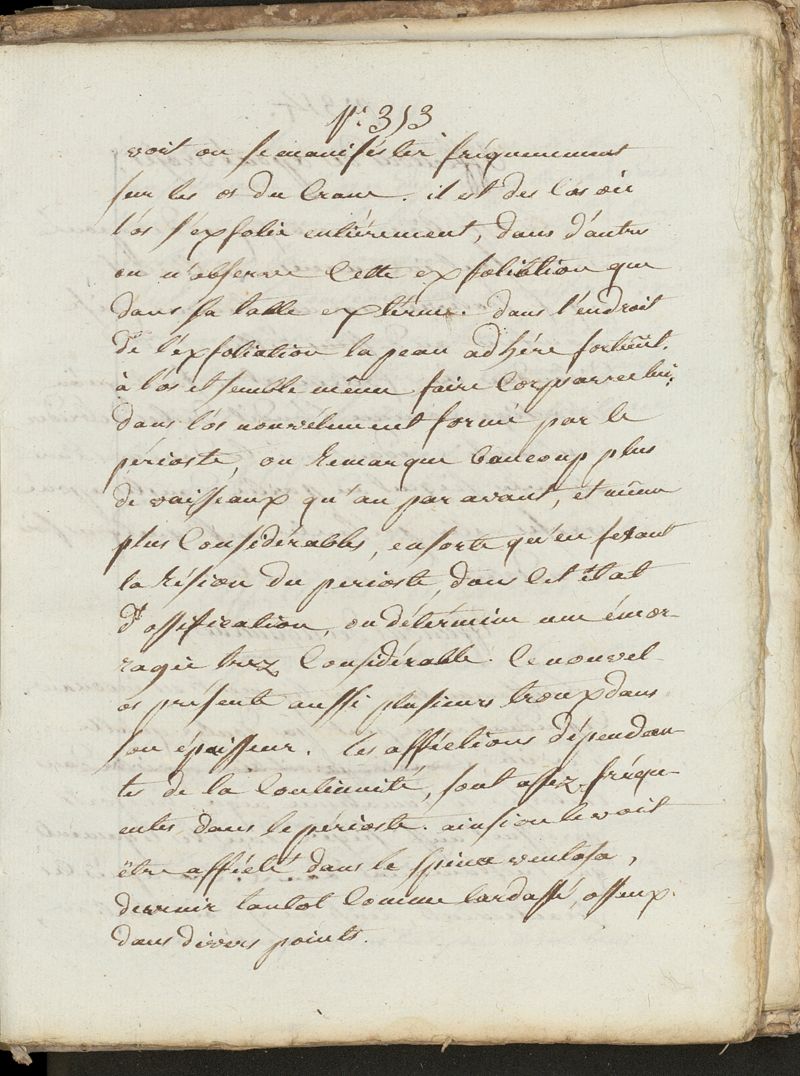 p.r 313
voit on se manifester fréquemment
sur les os du Crane. il est des Cas où
l'os s'exfolie entiérement, dans d'autres
on n'observe Cette exfoliation que
dans sa table externe. dans l'endroit
de l'éxfoliation la peau adhére fortem.t
à l'os et semble même faire Corps avec lui.
dans l'os nouvélement formé par le
périoste, on Remarque baucoup plus
de vaisseaux qu'au par avant, et même
plus Considérables, ensorte qu'en fesant
la Résion du perioste, dans Cet état
d'ossification, on détérmine une émor-
ragie trez Considérable. Ce nouvel
os présente aussi plusieurs troux dans
son épaisseur. les afféctions dépendan-
tes de la Continuité, sont assez fréqu-
entes dans le périoste. ainsi on le voit
être affécté dans le spina ventosa,
devenir tantot Comme lardassé, osseux
dans divers points.